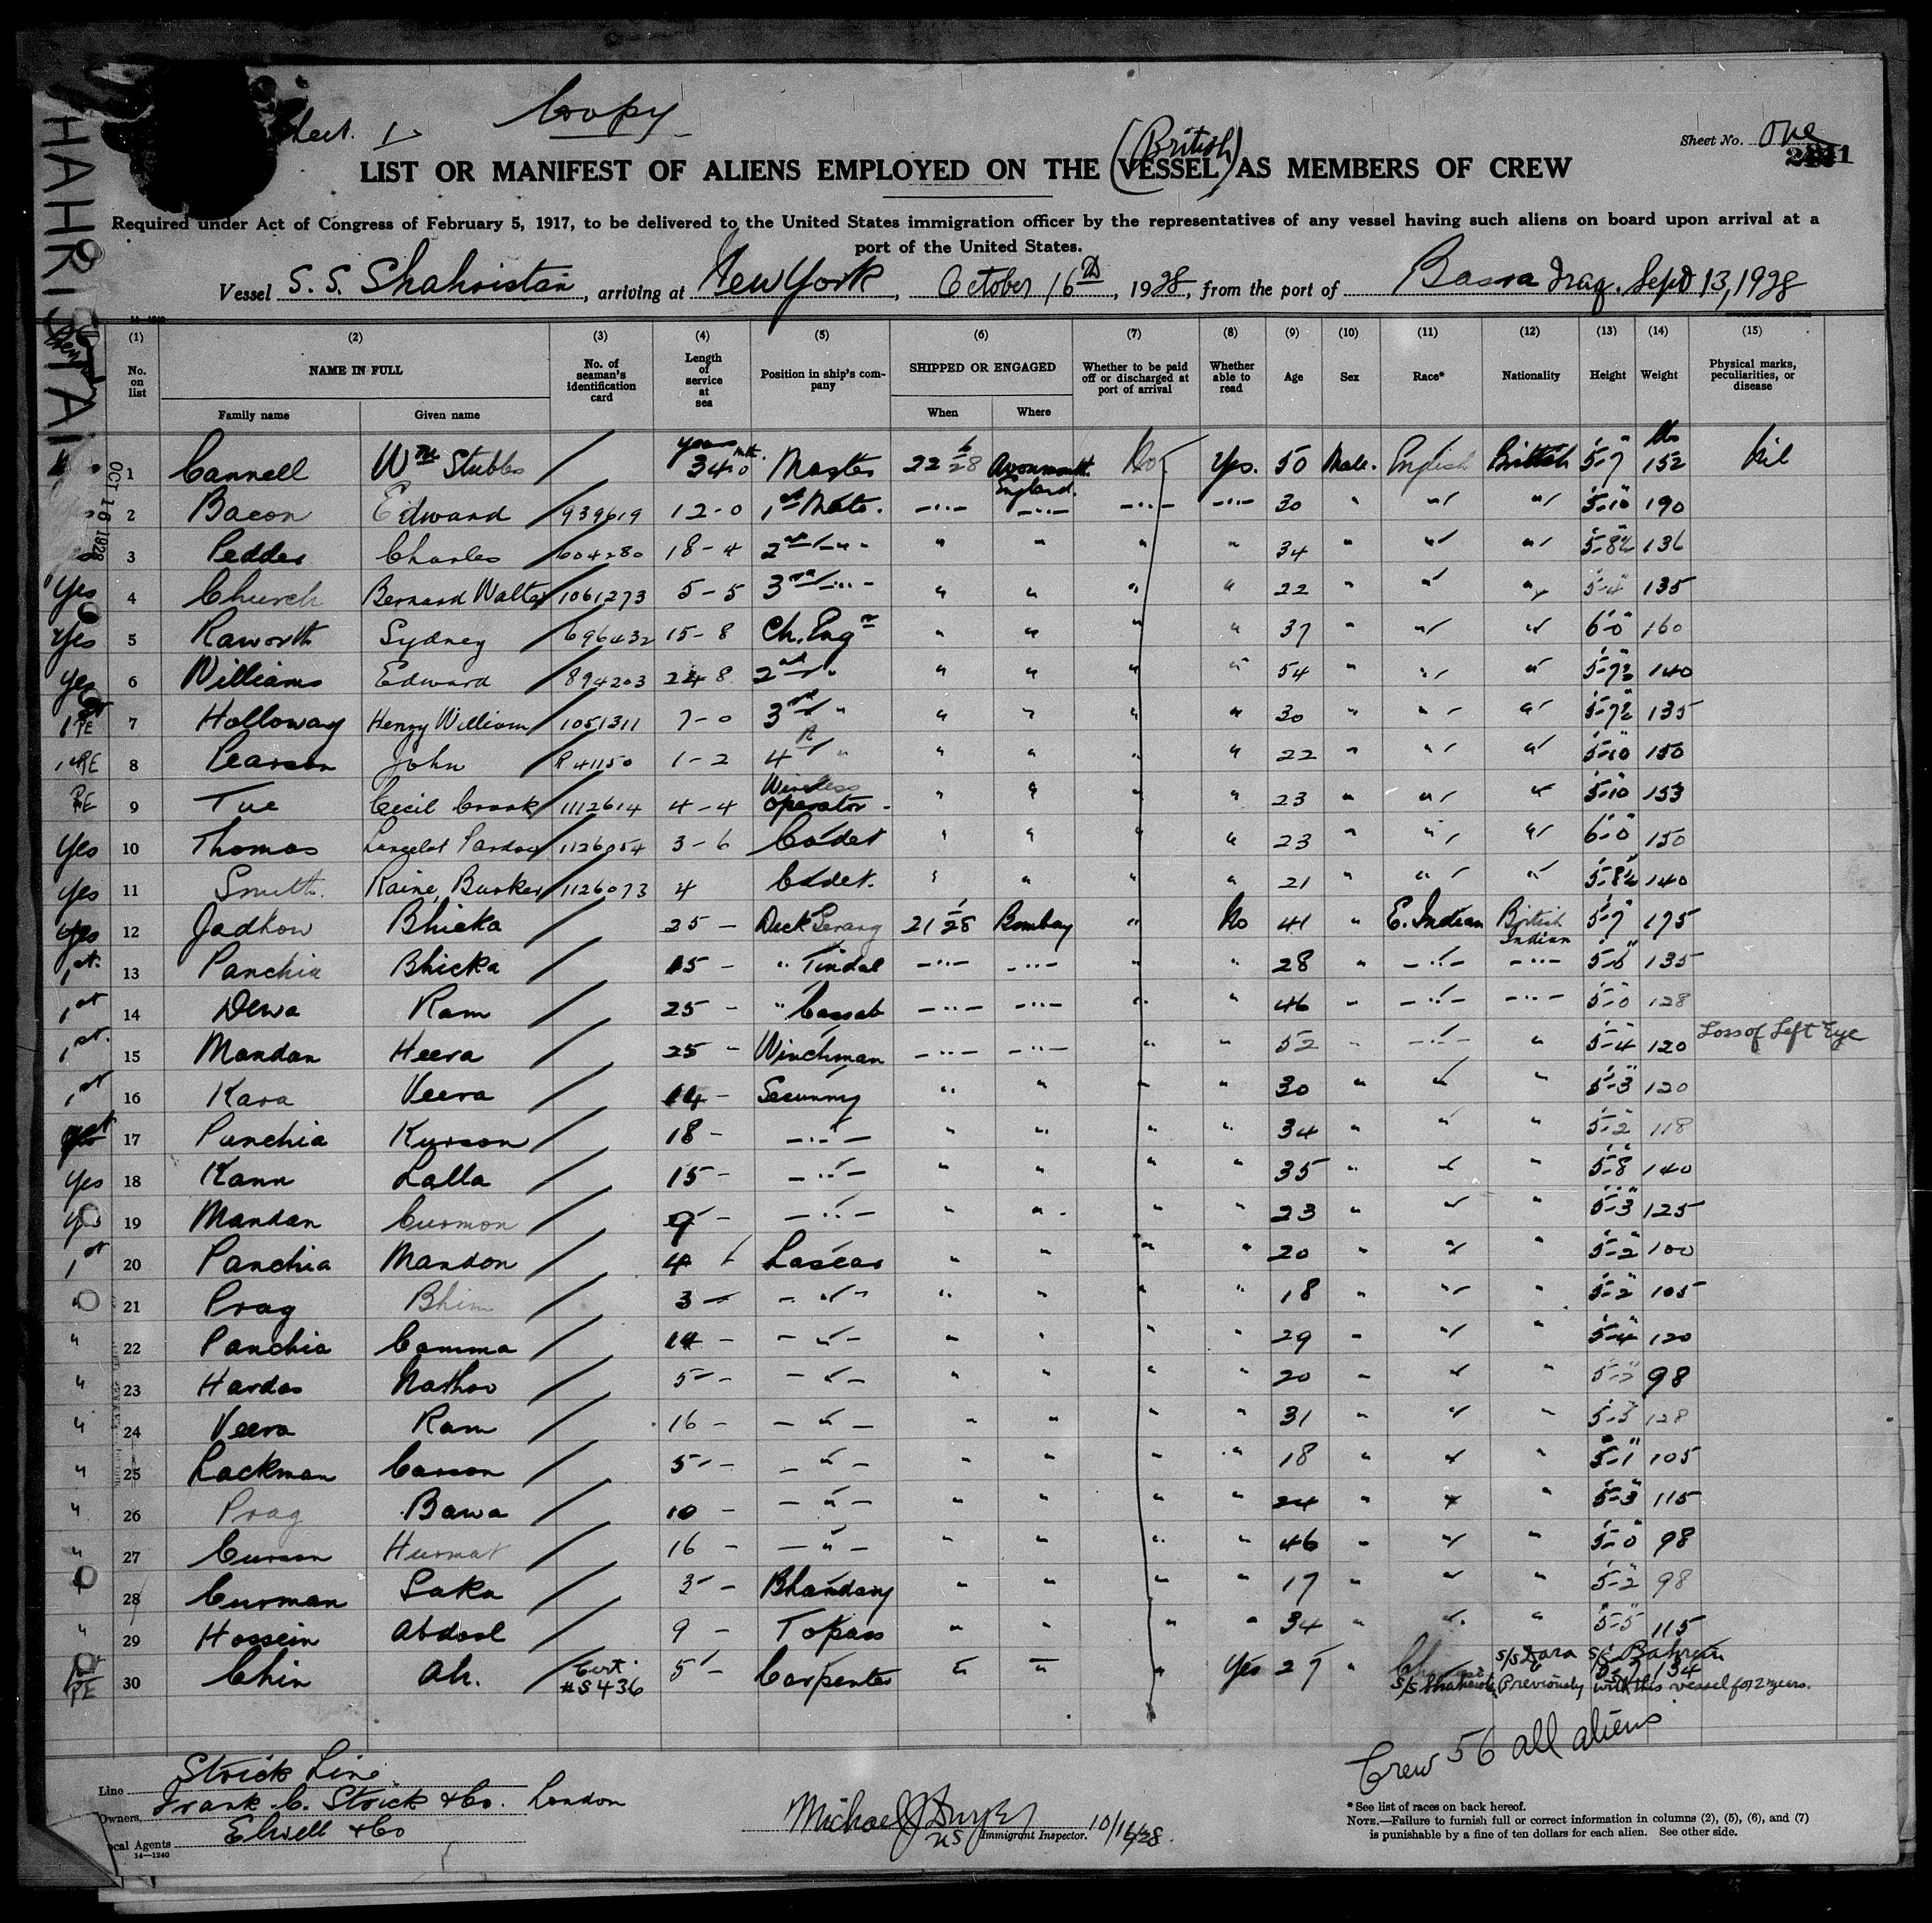 Copy
Sheet No. One
(British)
LIST OR MANIFEST OF ALIENS EMPLOYED ON THE (VESSEL) AS MEMBERS OF CREW
Required under Act of Congress of February 5, 1917, to be delivered to the United States immigration officer by the representatives of any vessel having such aliens on board upon arrival at a
port of the United States.
Vessel S. S. Shahristan, arriving at New York, October 16th, 1928, from the port of Basra Iraq. Sept 13, 1928
(1) (2) (3) (4) (5) (6) (7) (8) (9) (10) (11) (12) (13) (14) (15)
No. on list NAME IN FULL Family name Given name No. of seaman's identification card Length of service at sea Position in ship's company SHIPPED OR ENGAGED When Where Whether to be paid off or discharged at port of arrival Whether able to read Age Sex Race* Nationality Height Weight Physical marks, peculiarities, or disease
OCT 16 1928
1 Cannell Wm Stubbs / years 34-0 Master 22 6/28 Avonmouth England. No Yes. 50 Male. English British 5-7 lbs 152 Nil
2 Bacon Edward 939619 12-0 1st Mate. -"- -"- -"- -"- 30 " " " 5-10 190
3 Pedder Charles 604280 18-4 2nd -"- " " " " 34 " " " 5-8½ 136
Yes 4 Church Bernard Walter 1061273 5-5 3rd -"- " " " " 22 " " " 5-4 135
Yes 5 Raworth Sydney 696432 15-8 Ch. Engr " " " " 37 " " " 6-0 160
Yes 6 Williams Edward 894203 24 8 2nd " " " " " 54 " " " 5-7½ 140
PE 7 Holloway Henry William 1051311 7-0 3rd " " " " " 30 " " " 5-7½ 135
PE 8 Pearson John R 41150 1-2 4th " " " " " 22 " " " 5-10 150
PE 9 Tue Cecil Crook 1112614 4-4 Wireless operator - " " " " 23 " " " 5-10 153
Yes 10 Thomas Lancelot 1126054 3-6 Cadet " " " " 23 " " " 6-0 150
Yes 11 Smith Raine, Busker 1126073 4 Cadet. " " " " 21 " " " 5-8½ 140
Yes 12 Jadhow Bhicka / 25 - Deck Serang 21 1/28 Bombay " No 41 " E. Indian British Indian 5-7 175
1st 13 Panchia Bhicka / 15 - " Tindal -"- -"- " " 28 " -"- -"- 5-6 135
1st 14 Dewa Ram / 25 - " Cassab -"- -"- " " 46 " -"- -"- 5-0 128
1st 15 Mandan Heera / 25 - Winchman -"- -"- " " 52 " -"- " 5-4 120 Loss of Left Eye
1st 16 Kara Veera / 14 - Secunny " " " " 30 " " " 5-3 120
17 Punchia Kurson / 18 - -"- " " " " 34 " " " 5-2 118
Yes 18 Kann Lalla / 15 - -"- " " " " 35 " " " 5-8 140
Yes 19 Mandan Curmon / 9 - -"- " " " " 23 " " " 5-3 125
1st 20 Panchia Mandon / 4 Lascar " " " " 20 " " " 5-2 100
" 21 Prag Bhim / 3 - -"- " " " " 18 " " " 5-2 105
" 22 Panchia Camma / 14 - -"- " " " " 29 " " " 5-4 120
" 23 Hardas Nathoo / 5 - -"- " " " " 20 " " " 98
" 24 Veera Ram / 16 - -"- " " " " 31 " " " 5-3 128
" 25 Lackman Carson / 5 - -"- " " " " 18 " " " 5-1 105
" 26 Prag Bawa / 10 - -"- " " " " 24 " " " 5-3 115
" 27 Curson Hurmat / 16 - -"- " " " " 46 " " " 5-0 98
" 28 Curman Laka / 3 - Bhandary " " " " 17 " " " 5-2 98
" 29 Hossein Abdool / 9 - Topass " " " " 34 " " " 5-5 115
PE 30 Chin Ah. Cert #S436 5 - Carpenter " " " Yes 27 " 5-7 134
s/s Dara s/s Bahrein
s/s Shahristan Previously with this vessel for 2 years.
Crew 56 all aliens
Line Strick Line
Owners Frank C. Strick & Co. London
Local Agents Elwell & Co
14—1240
US Immigrant Inspector. 10/16/28.
* See list of races on back hereof.
NOTE.—Failure to furnish full or correct information in columns (2), (5), (6), and (7)
is punishable by a fine of ten dollars for each alien. See other side.